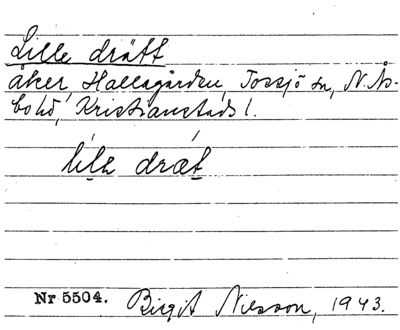 Lille drätt
åker, Hallagården, Tossjö sn, N. Ås-
bo hd, Kristianstads l.
lilə dræt
Nr 5504. Birgit Nilsson, 1943.